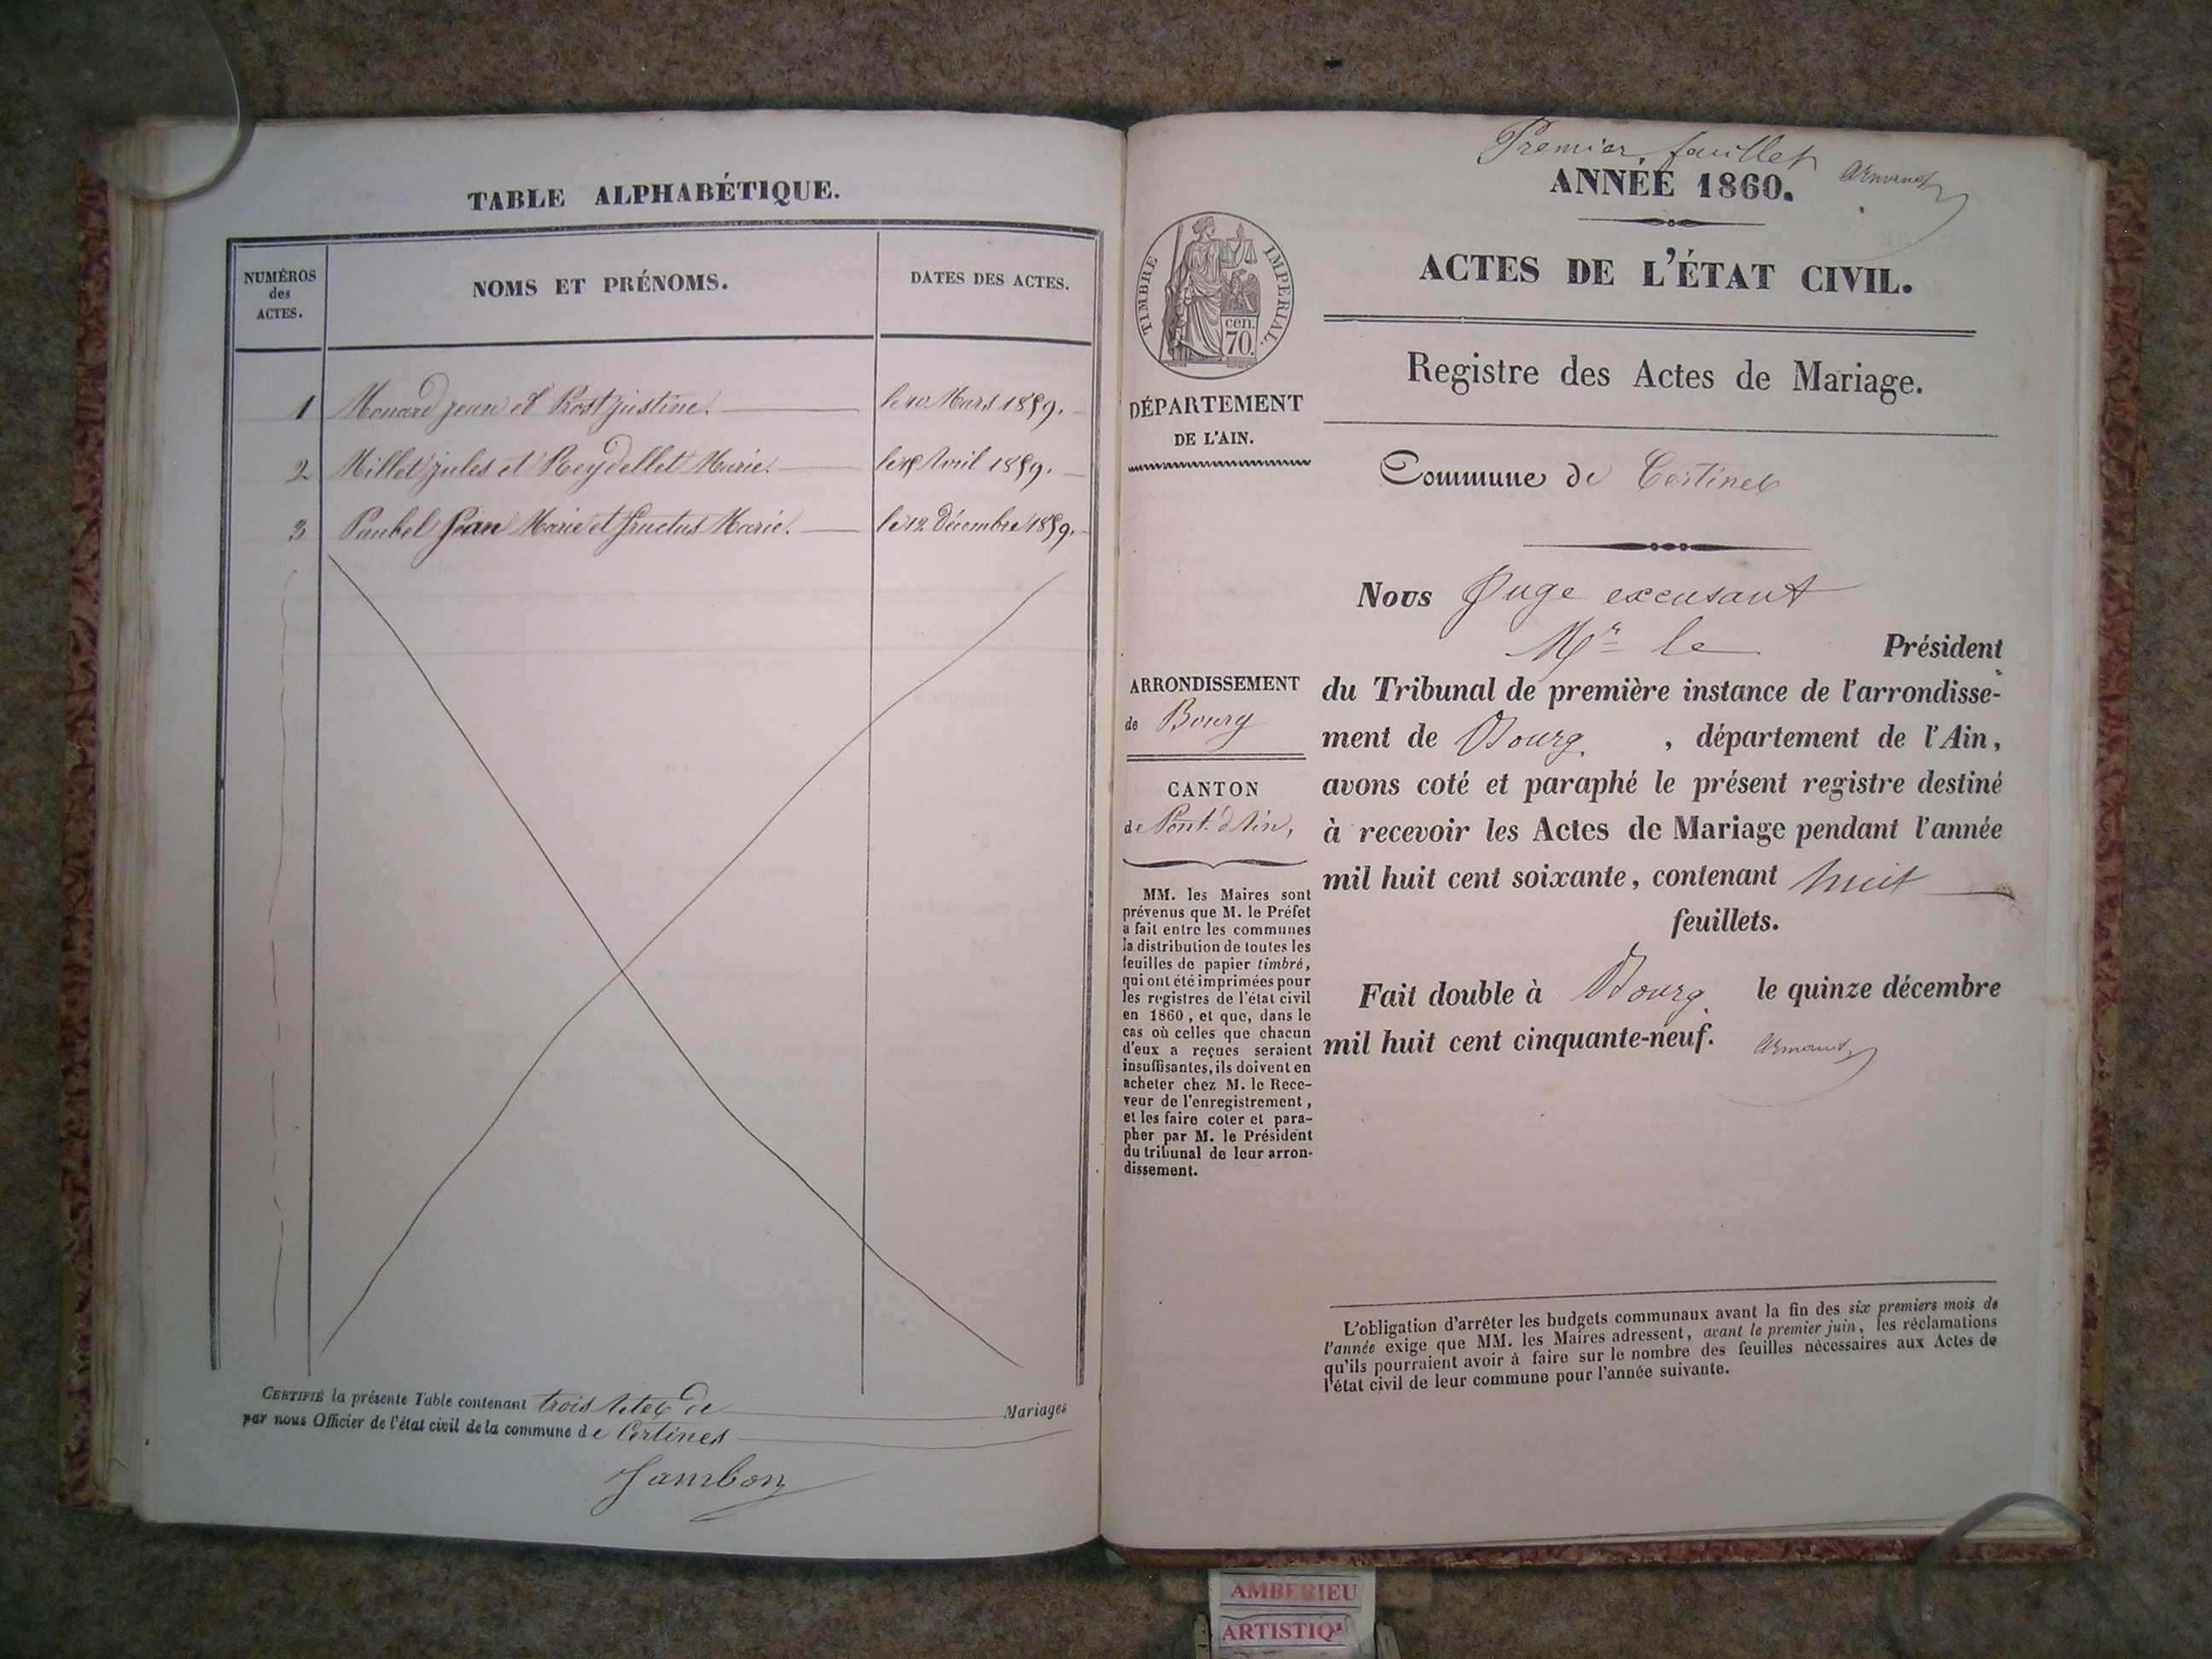 TABLE ALPHABÉTIQUE.
NUMÉROS
des
ACTES.
NOMS ET PRÉNOMS.
DATES DES ACTES.
1 Monard jean et Prost justine. le 10 Mars 1859.
2 Millet jules et Reydellet Marie. le Avril 1859.
3 Paubel Jean Marie et fructus Marie. le 12 Décembre 1859.
CERTIFIÉ la présente Table contenant trois Actes de Mariages
par nous Officier de l'état civil de la commune de Certines
Jambon
Premier feuillet
ANNÉE 1860.
ACTES DE L'ÉTAT CIVIL.
Registre des Actes de Mariage.
TIMBRE IMPERIAL
cen.
70.
DÉPARTEMENT
DE L'AIN.
Commune de Certines
Nous Juge excusant
Mr le Président
du Tribunal de première instance de l'arrondisse-
ment de Bourg, département de l'Ain,
avons coté et paraphé le présent registre destiné
à recevoir les Actes de Mariage pendant l'année
mil huit cent soixante, contenant huit
feuillets.
Fait double à Bourg le quinze décembre
mil huit cent cinquante-neuf.
ARRONDISSEMENT
de Bourg
CANTON
de Pont-d'Ain,
MM. les Maires sont
prévenus que M. le Préfet
a fait entre les communes
la distribution de toutes les
feuilles de papier timbré,
qui ont été imprimées pour
les registres de l'état civil
en 1860, et que, dans le
cas où celles que chacun
d'eux a reçues seraient
insuffisantes, ils doivent en
acheter chez M. le Rece-
veur de l'enregistrement,
et les faire coter et para-
pher par M. le Président
du tribunal de leur arron-
dissement.
L'obligation d'arrêter les budgets communaux avant la fin des six premiers mois de
l'année exige que MM. les Maires adressent, avant le premier juin, les réclamations
qu'ils pourraient avoir à faire sur le nombre des feuilles nécessaires aux Actes de
l'état civil de leur commune pour l'année suivante.
AMBERIEU
ARTISTIQ